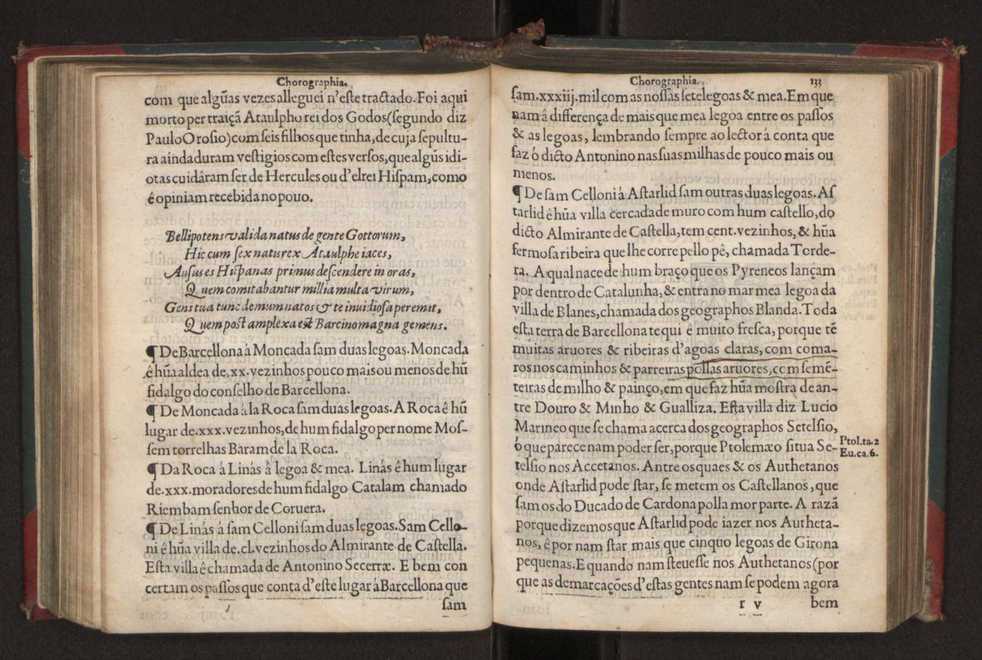 Chorographia.
com que algũas vezes alleguei n'este tractado. Foi aqui
morto per traiçã Ataulpho rei dos Godos (segundo diz
Paulo Orosio) com seis filhos que tinha, de cuja sepultu-
ra ainda duram vestigios com estes versos, que algũs idi-
otas cuidáram ser de Hercules ou d'elrei Hispam, como
é opiniam recebida no pouo.
Bellipotens valida natus de gente Gottorum,
Hic cum sex natur ex Ataulphe iaces,
Ausus es Hispanas primus descendere in oras,
Quem comitabantur millia multa virum,
Gens tua tunc demum natos & te inuidiosa peremit,
Quem post amplexa est Barcino magna gemens.
¶ De Barcellona à Moncada sam duas legoas. Moncada
é hũa aldea de .xx. vezinhos pouco mais ou menos de hũ
fidalgo do conselho de Barcellona.
¶ De Moncada à la Roca sam duas legoas. A Roca é hũ
lugar de .xxx. vezinhos, de hum fidalgo per nome Mos-
sem torrelhas Baram de la Roca.
¶ Da Roca à Linàs à legoa & mea. Linàs é hum lugar
de .xxx. moradores de hum fidalgo Catalam chamado
Riembam senhor de Coruera.
¶ De Linàs à sam Celloni sam duas legoas. Sam Cello-
ni é hũa villa de .cl. vezinhos do Almirante de Castella.
Esta villa é chamada de Antonino Secerræ. E bem con
certam os passos que conta d'este lugar à Barcellona que
sam
Chorographia. 133
sam .xxxiij. mil com as nossas sete legoas & mea. Em que
nam à differença de mais que mea legoa entre os passos
& as legoas, lembrando sempre ao lector à conta que
faz o dicto Antonino nas suas milhas de pouco mais ou
menos.
¶ De sam Celloni à Astarlid sam outras duas legoas. As
tarlid é hũa villa cercada de muro com hum castello, do
dicto Almirante de Castella, tem cent. vezinhos, & hũa
fermosa ribeira que lhe corre pello pê, chamada Torde-
ra. A qual nace de hum braço que os Pyreneos lançam
por dentro de Catalunha, & entra no mar mea legoa da
villa de Blanes, chamada dos geographos Blanda. Toda
esta terra de Barcellona tequi é muito fresca, porque tẽ
muitas aruores & ribeiras d'agoas claras, com coma-
ros nos caminhos & parreiras pollas aruores, com seme-
teiras de milho & painço, em que faz hũa mostra de an-
tre Douro & Minho & Gualliza. Esta villa diz Lucio
Marineo que se chama acerca dos geographos Setelsio,
ò que parece nam poder ser, porque Ptolemæo situa Se-
telsio nos Accetanos. Antre os quaes & os Authetanos
onde Astarlid pode star, se metem os Castellanos, que
sam os do Ducado de Cardona polla mor parte. A razã
porque dizemos que Astarlid pode iazer nos Autheta-
nos, é por nam star mais que cinquo legoas de Girona
pequenas. E quando nam steuesse nos Authetanos (por
que as demarcações d'estas gentes nam se podem agora
Ptol. ta. 2
Eu. ca. 6.
r v bem